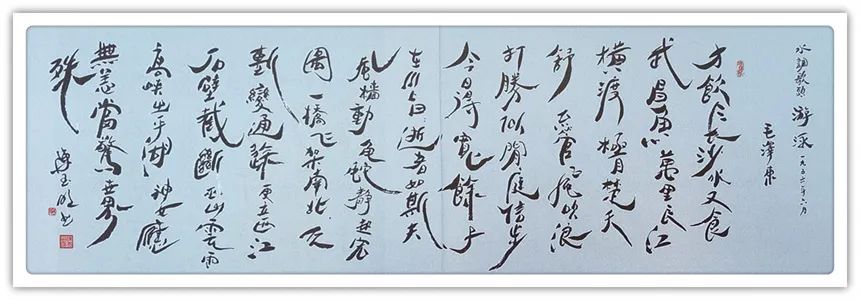 水調歌頭 游泳 一九五六年六月
毛澤東
才飲长沙水又食
武昌魚萬里长江
橫渡極目楚天
舒不管風吹浪
打勝似閒庭信步
今日得寬餘子
在川上曰逝者如斯夫
風檣動龜蛇静起宏
圖一橋飞架南北天
塹變通路更立西江
石壁截斷巫山雲雨
高峡出平湖神女應
無恙當驚世界
殊
书